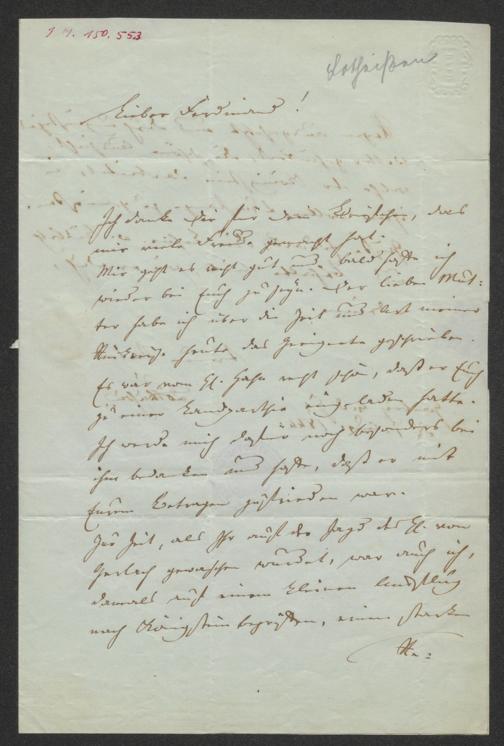 I. N. 150.553
Lotheißen
Lieber Ferdinand!
Ich danke Dir für Dein Brieflein, das
mir viele Freude gemacht hat.
Mir geht es recht gut und bald hoffe ich
wieder bei Euch zu seyn. Der lieben Mut-
ter habe ich über die Zeit und Art meiner
Rückreise heute das Geeignete geschrieben.
Es war vom H. Hahn recht schön, daß er Euch
zu einer Landparthie eingeladen hatte.
Ich werde mich dafür noch besonders bei
ihm bedanken und hoffe, daß er mit
Eurem Betragen zufrieden war.
Zur Zeit, als Ihr auf der Jagd des H. von
Gerlach gewaschen wurdet, war auch ich,
damals auf einem kleinen Ausflug
nach Königstein begriffen, einem starken